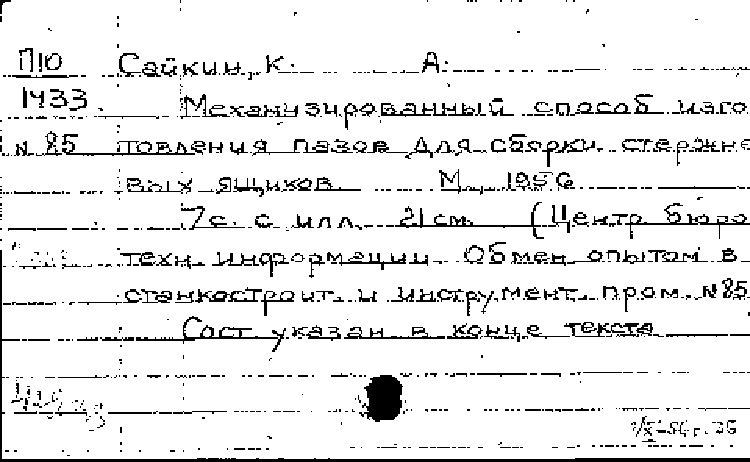 П10 Сайкин, К. А.
1433. Механизированный способ изго
N 85 товления пазов для сборки стержне
вых ящиков. М., 1956
7 с. с илл. 21 см. (Центр. бюро
техн. информации. Обмен опытом в
станкостроит. и инструмент. пром. N 85
Сост. указан в конце текста